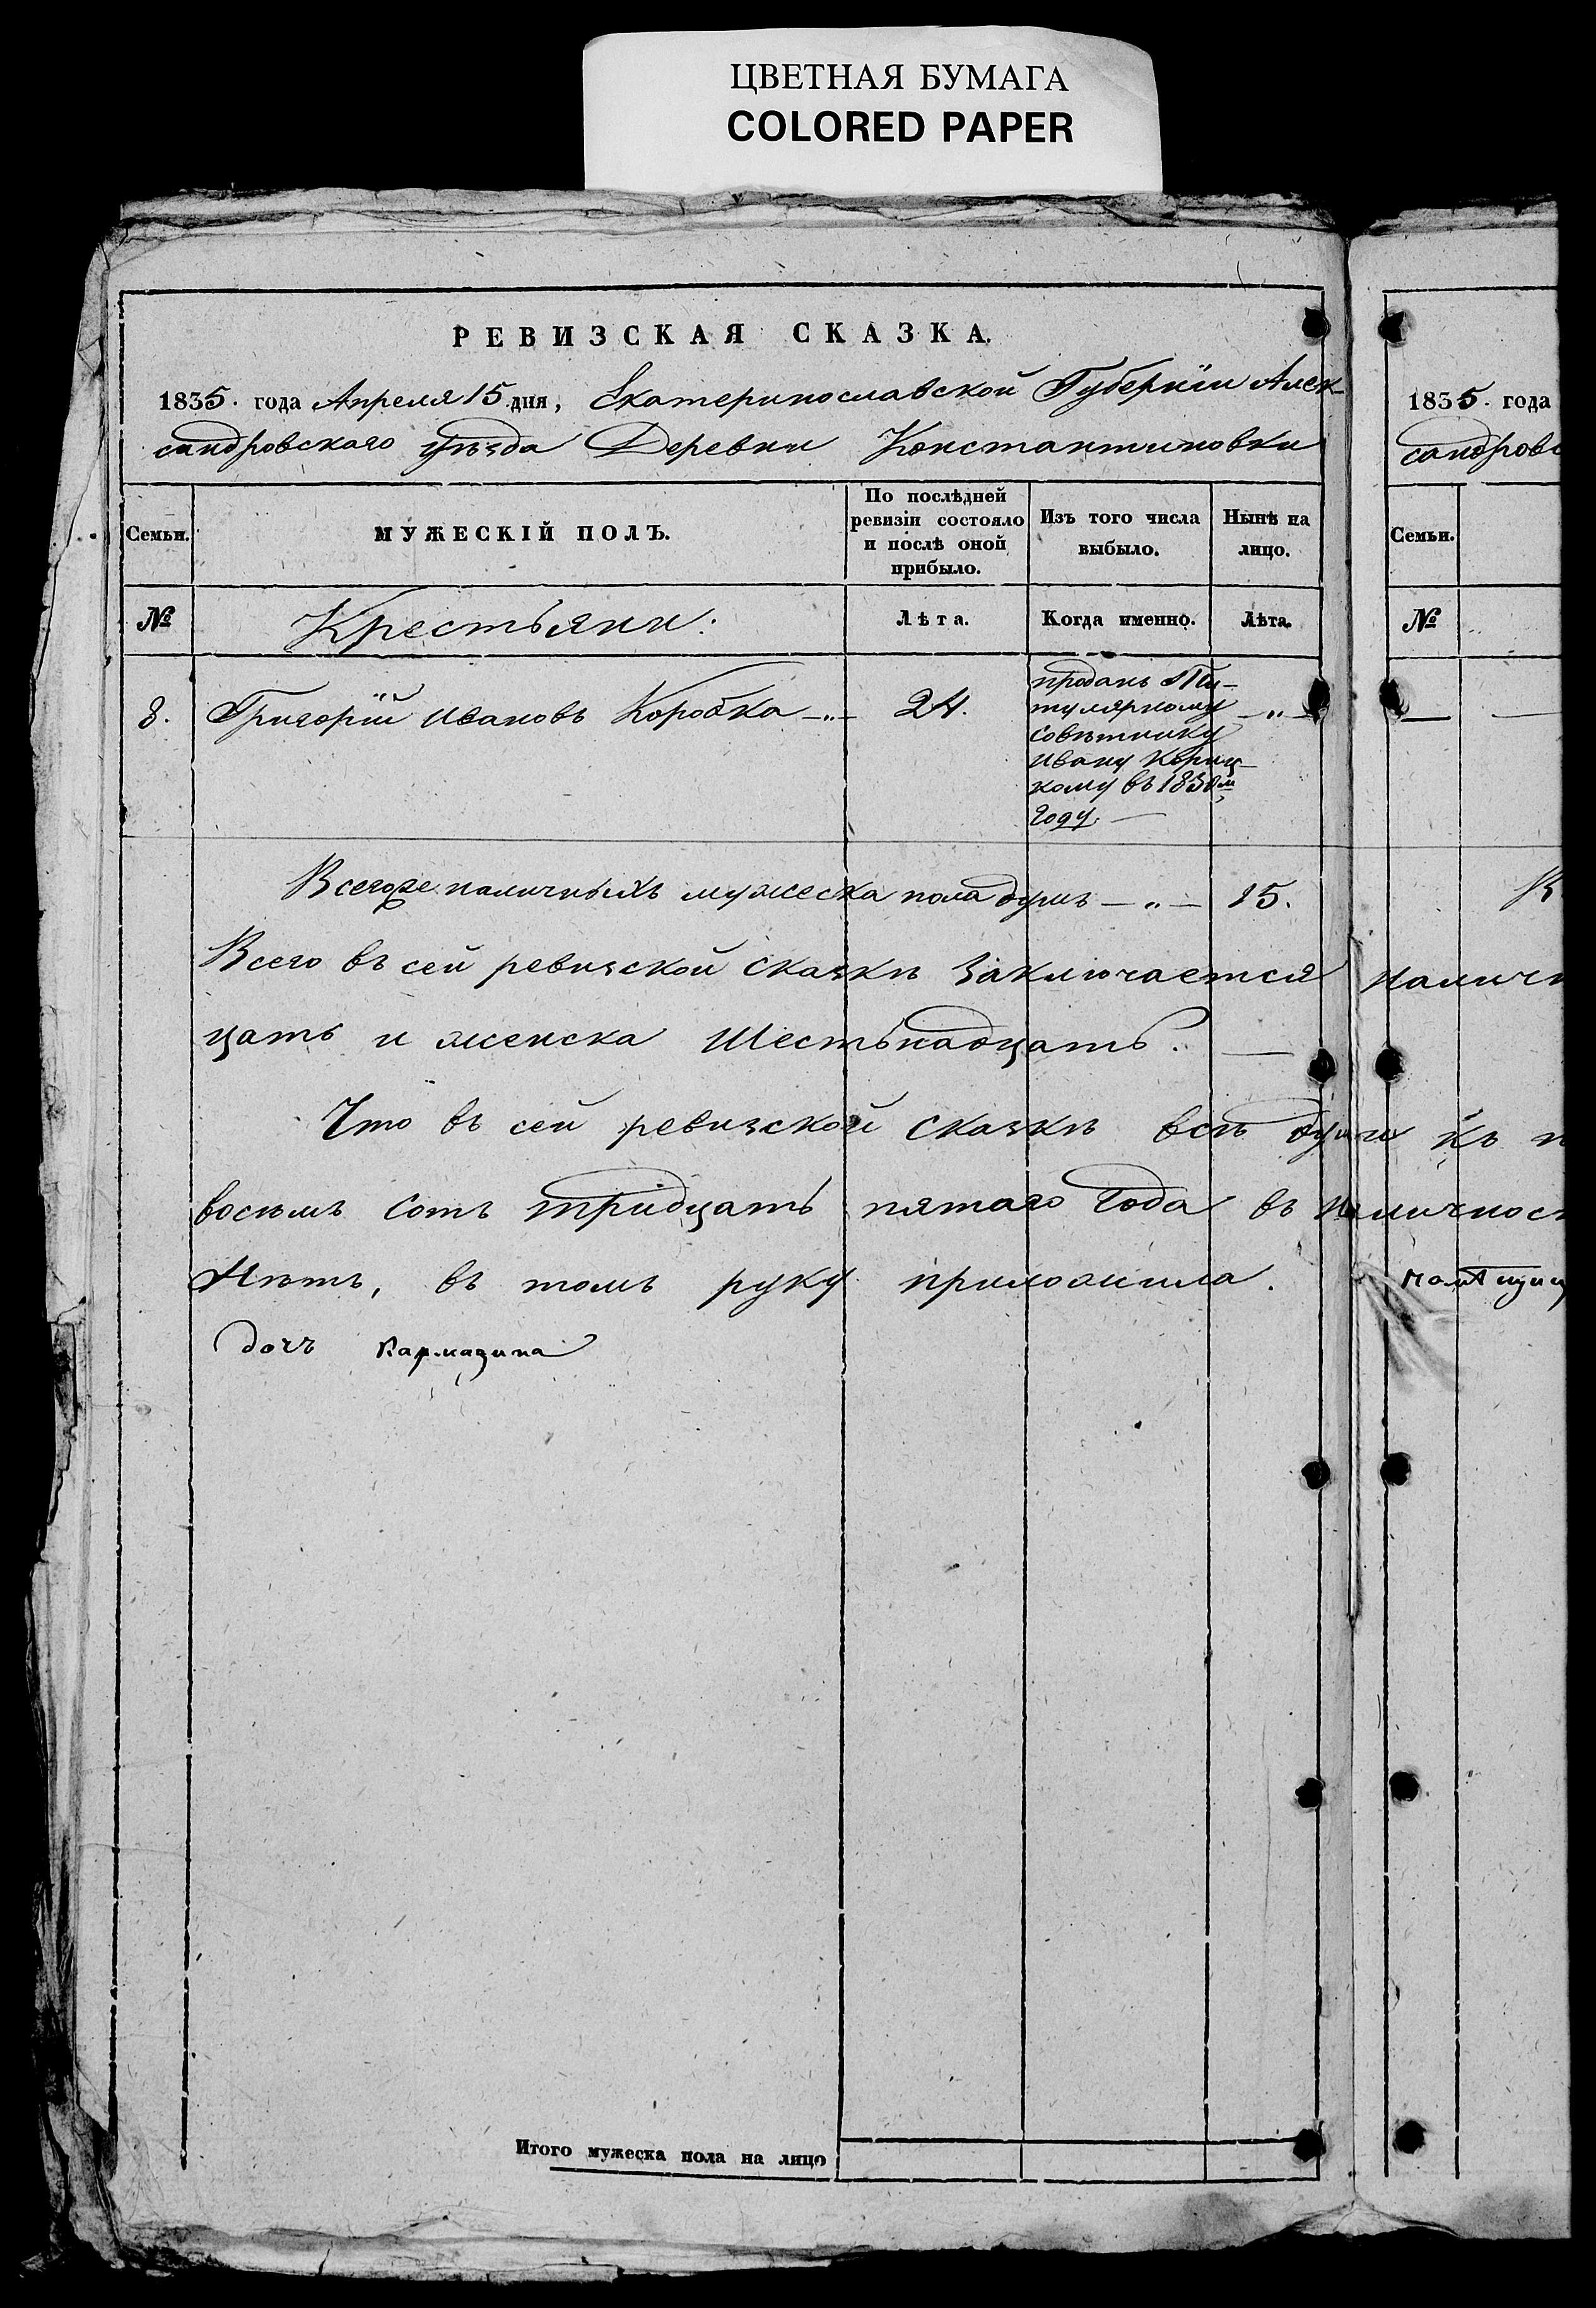 ЦВЕТНАЯ БУМАГА
COLORED PAPER
РЕВИЗСКАЯ СКАЗКА.
1835. года Апреля 15 дня, Екатеринославской Губернїи Алек-
сандровского уѣзда Деревни Константиновки
Семьи.
МУЖЕСКІЙ ПОЛЪ.
По послѣдней
ревизіи состояло
и послѣ оной
прибыло.
Изъ того числа
выбыло.
Нынѣ на
лицо.
№
Крестьяни:
Лѣта.
Когда именно.
Лѣта.
8. Григорїй Ивановъ Коробка —„— 24.
проданъ Ти-
тулярному
Совѣтнику
Ивану
кому въ
году. —
—„—
Всегоже наличныхъ мужеска пола душъ —„— 15.
Всего въ сей ревизской сказкѣ заключается
цать и женска Шестьнадцать. —
Что въ сей ревизской сказкѣ всѣ души
восѣмъ сотъ тридцать пятаго года въ
Нѣтъ, въ томъ руку приложила.
дочъ Кармазина
Итого мужеска пола на лицо
1835. года
сандровс
Семьи.
№
В
наличн
къ п
наличнос
помѣщиц